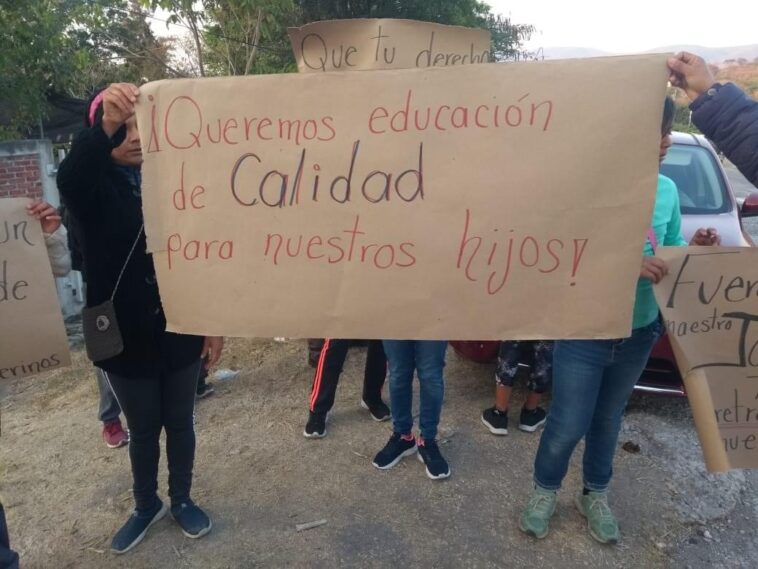 Que tu derecho
¡Queremos educación
de Calidad
para nuestros hijos!
un
de
Fuera
maestro
retr
nue